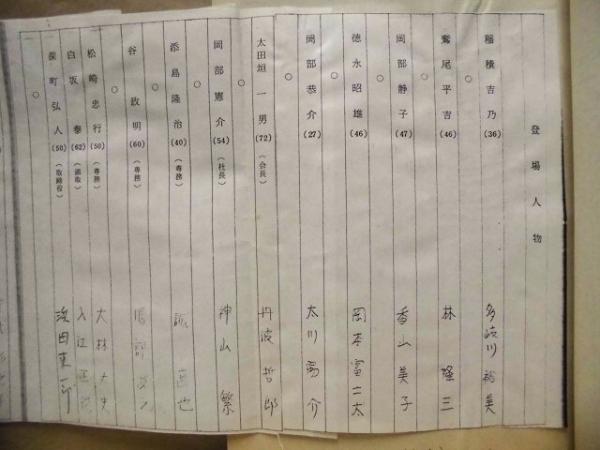 登場人物
稲積吉乃(36) 多岐川裕美
鷲尾平吉(46) 林隆三
岡部静子(47) 香山美子
徳永昭雄(46) 岡本富士太
○
岡部恭介(27) 太川陽介
○
太田垣一男(72)(会長) 丹波哲郎
○
岡部憲介(54)(社長) 神山繁
○
添島隆治(40)(専務)
○
谷政明(60)(専務)
○
松崎忠行(50)(専務) 大林丈史
白坂泰(62)(頭取)
町弘人(50)(取締役)
○